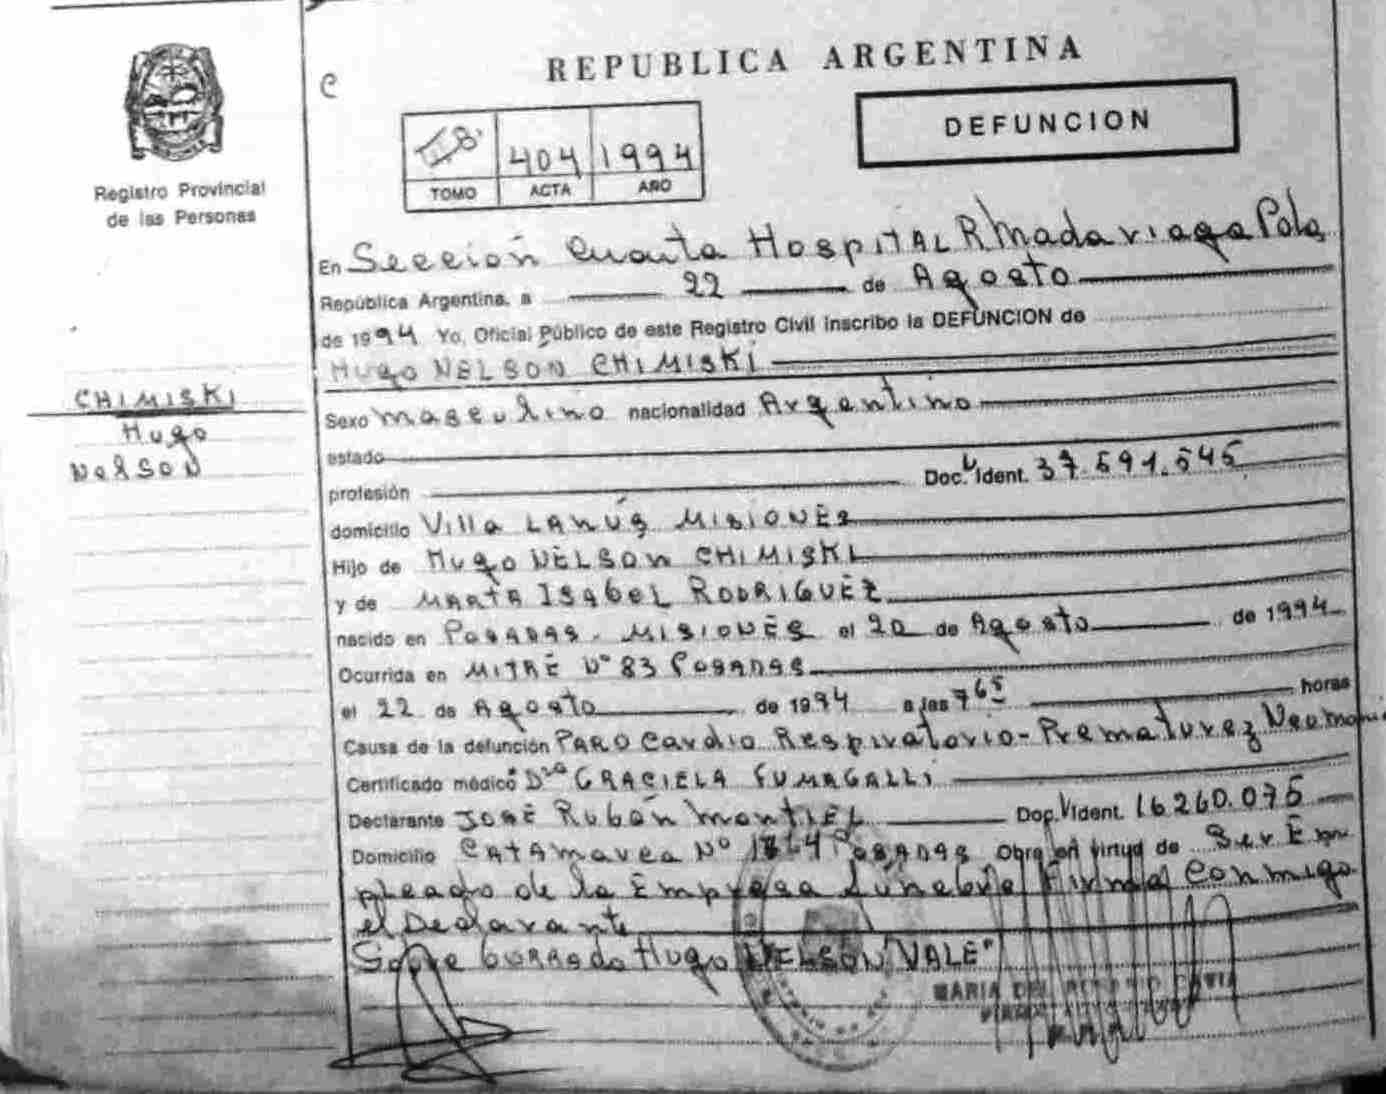 REPUBLICA ARGENTINA
DEFUNCION
404 1994
TOMO ACTA AÑO
Registro Provincial
de las Personas
CHIMISKI
Hugo
NelSON
En Sección Cuarta HOSPITAL R Madariaga Pdas
República Argentina, a 22 de Agosto
de 1994 Yo, Oficial Público de este Registro Civil inscribo la DEFUNCION de
Hugo NELSON CHIMISKI
Sexo masculino nacionalidad Argentino
estado
profesión Doc. Ident. 37.591.545
domicilio Villa LANÚS MISIONES
Hijo de Hugo NELSON CHIMISKI
y de MARTA ISABEL RODRIGUEZ
nacido en POSADAS - MISIONES el 20 de Agosto de 1994
Ocurrida en MITRE Nº 83 POSADAS
el 22 de Agosto de 1994 a las 7 horas
Causa de la defunción PARO Cardio Respiratorio - Prematurez
Certificado médico Dra GRACIELA FUMAGALLI
Declarante JOSÉ Rubén Montiel Doc. Ident. 16.260.075
Domicilio CATAMARCA Nº POSADAS Obra en virtud de Ser Em
pleado de la Empresa fúnebre Firma Conmigo
el Declarante
Sobre borrado Hugo NELSON "VALE"
MARIA DEL